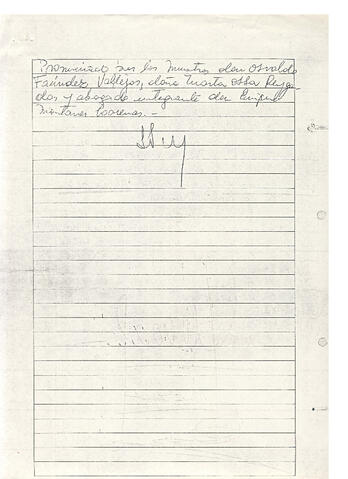 Pronunciado por los Ministros don Osvaldo
Faúndez Vallejos, doña Marta Ossa Reyga-
das y abogado integrante don Enrique
Montaner